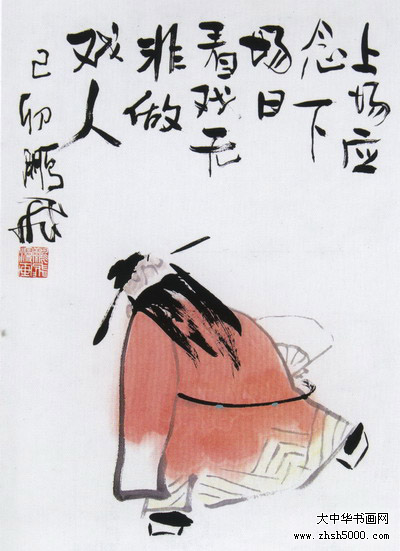 上场应
念下
场日
看戏无
非做
戏人
己卯鹏飞
大中华书画网
www.zhsh5000.com